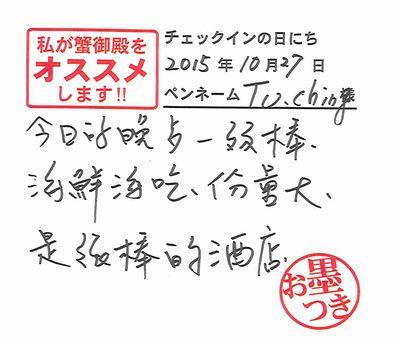 私が蟹御殿を
オススメ
します!!
チェックインの日にち
2015年10月27日
ペンネーム Tu.ching 様
今日的晚点一级棒、
海鮮海吃、份量大、
是级棒的酒店.
お墨つき